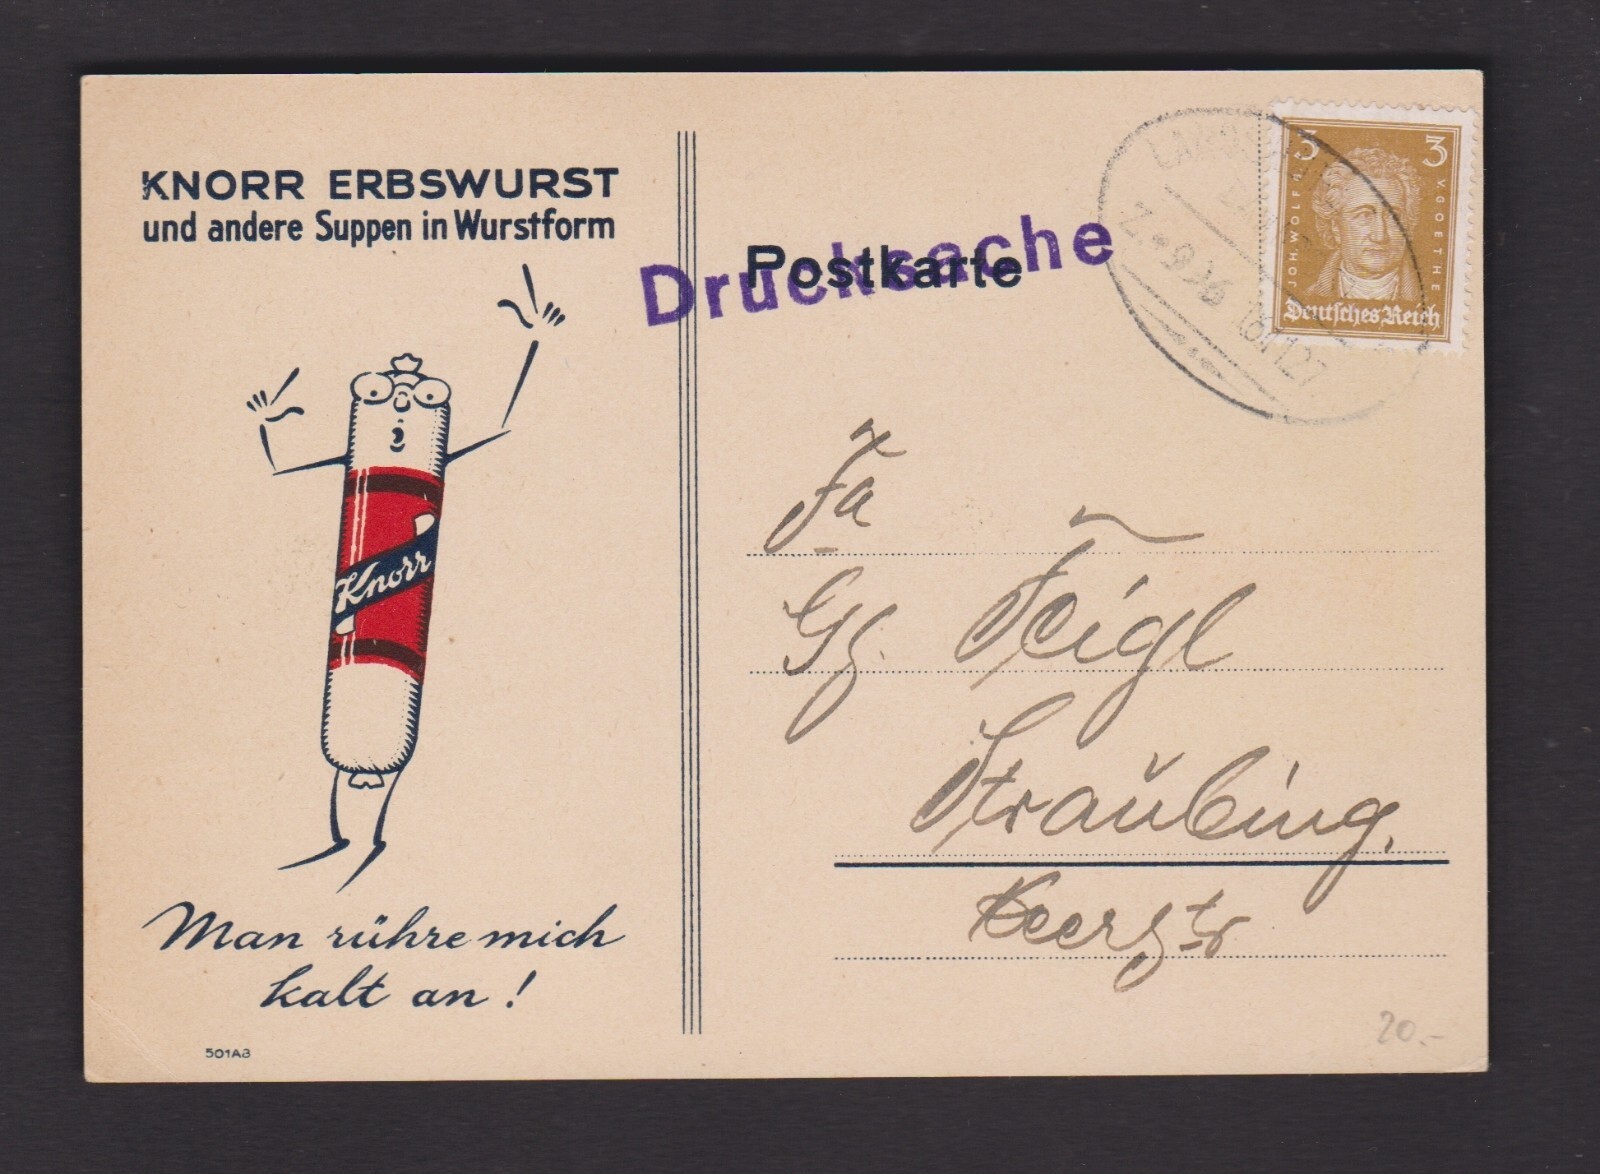 KNORR ERBSWURST
und andere Suppen in Wurstform
Knorr
Man rühre mich
kalt an!
501A3
Postkarte
Drucksache
3 3
JOH. WOLFG. V GOETHE
Deutsches Reich
Z. 926
Fa
Gg. Feigl
Straubing.
20.-